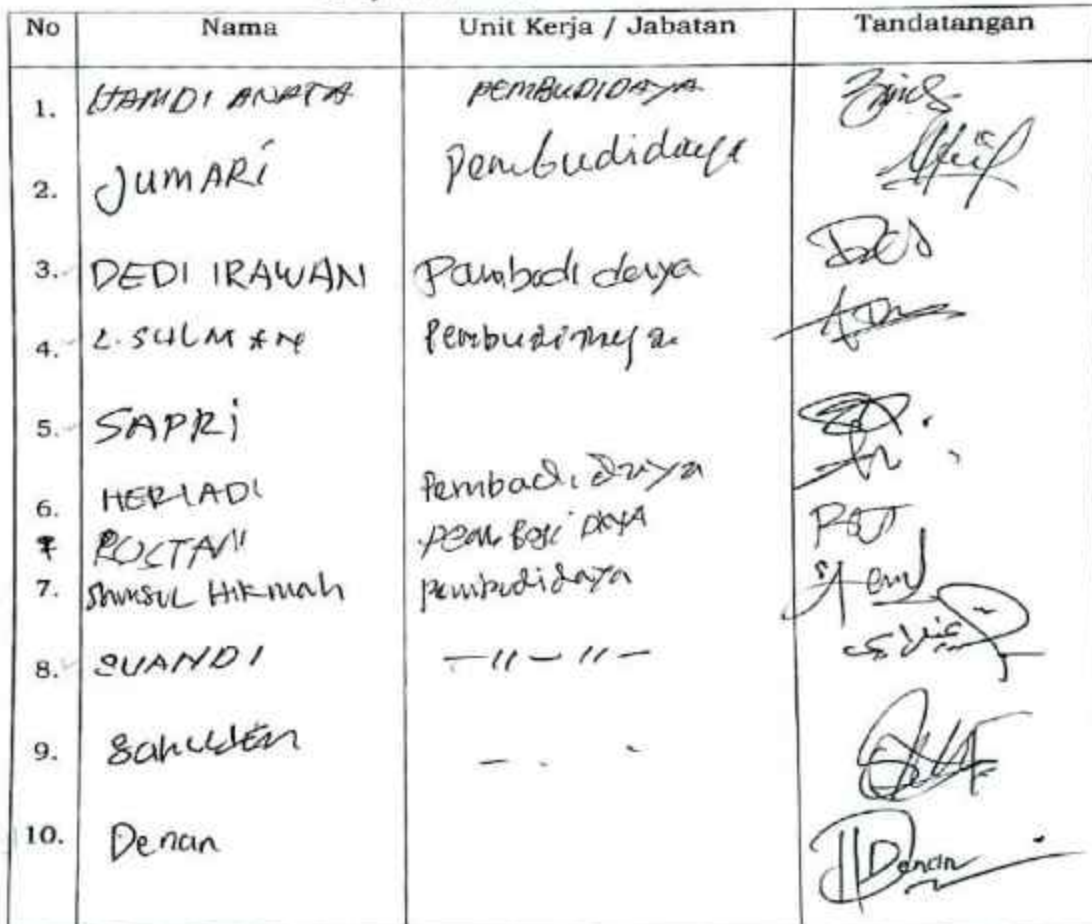 No Nama Unit Kerja / Jabatan Tandatangan
1. HAMDI ANATA PEMBUDIDAYA
2. JUMARI Pembudidaya
3. DEDI IRAWAN Pambodi daya
4. L. SULMAN
5. SAPRI
6. HERIADI Pembadi daya
ROSTAN
7. SAMSUL HIKmah Pembudidaya
8. SUANDI —〃—〃—
9. Sahuden
10. Denan Denan